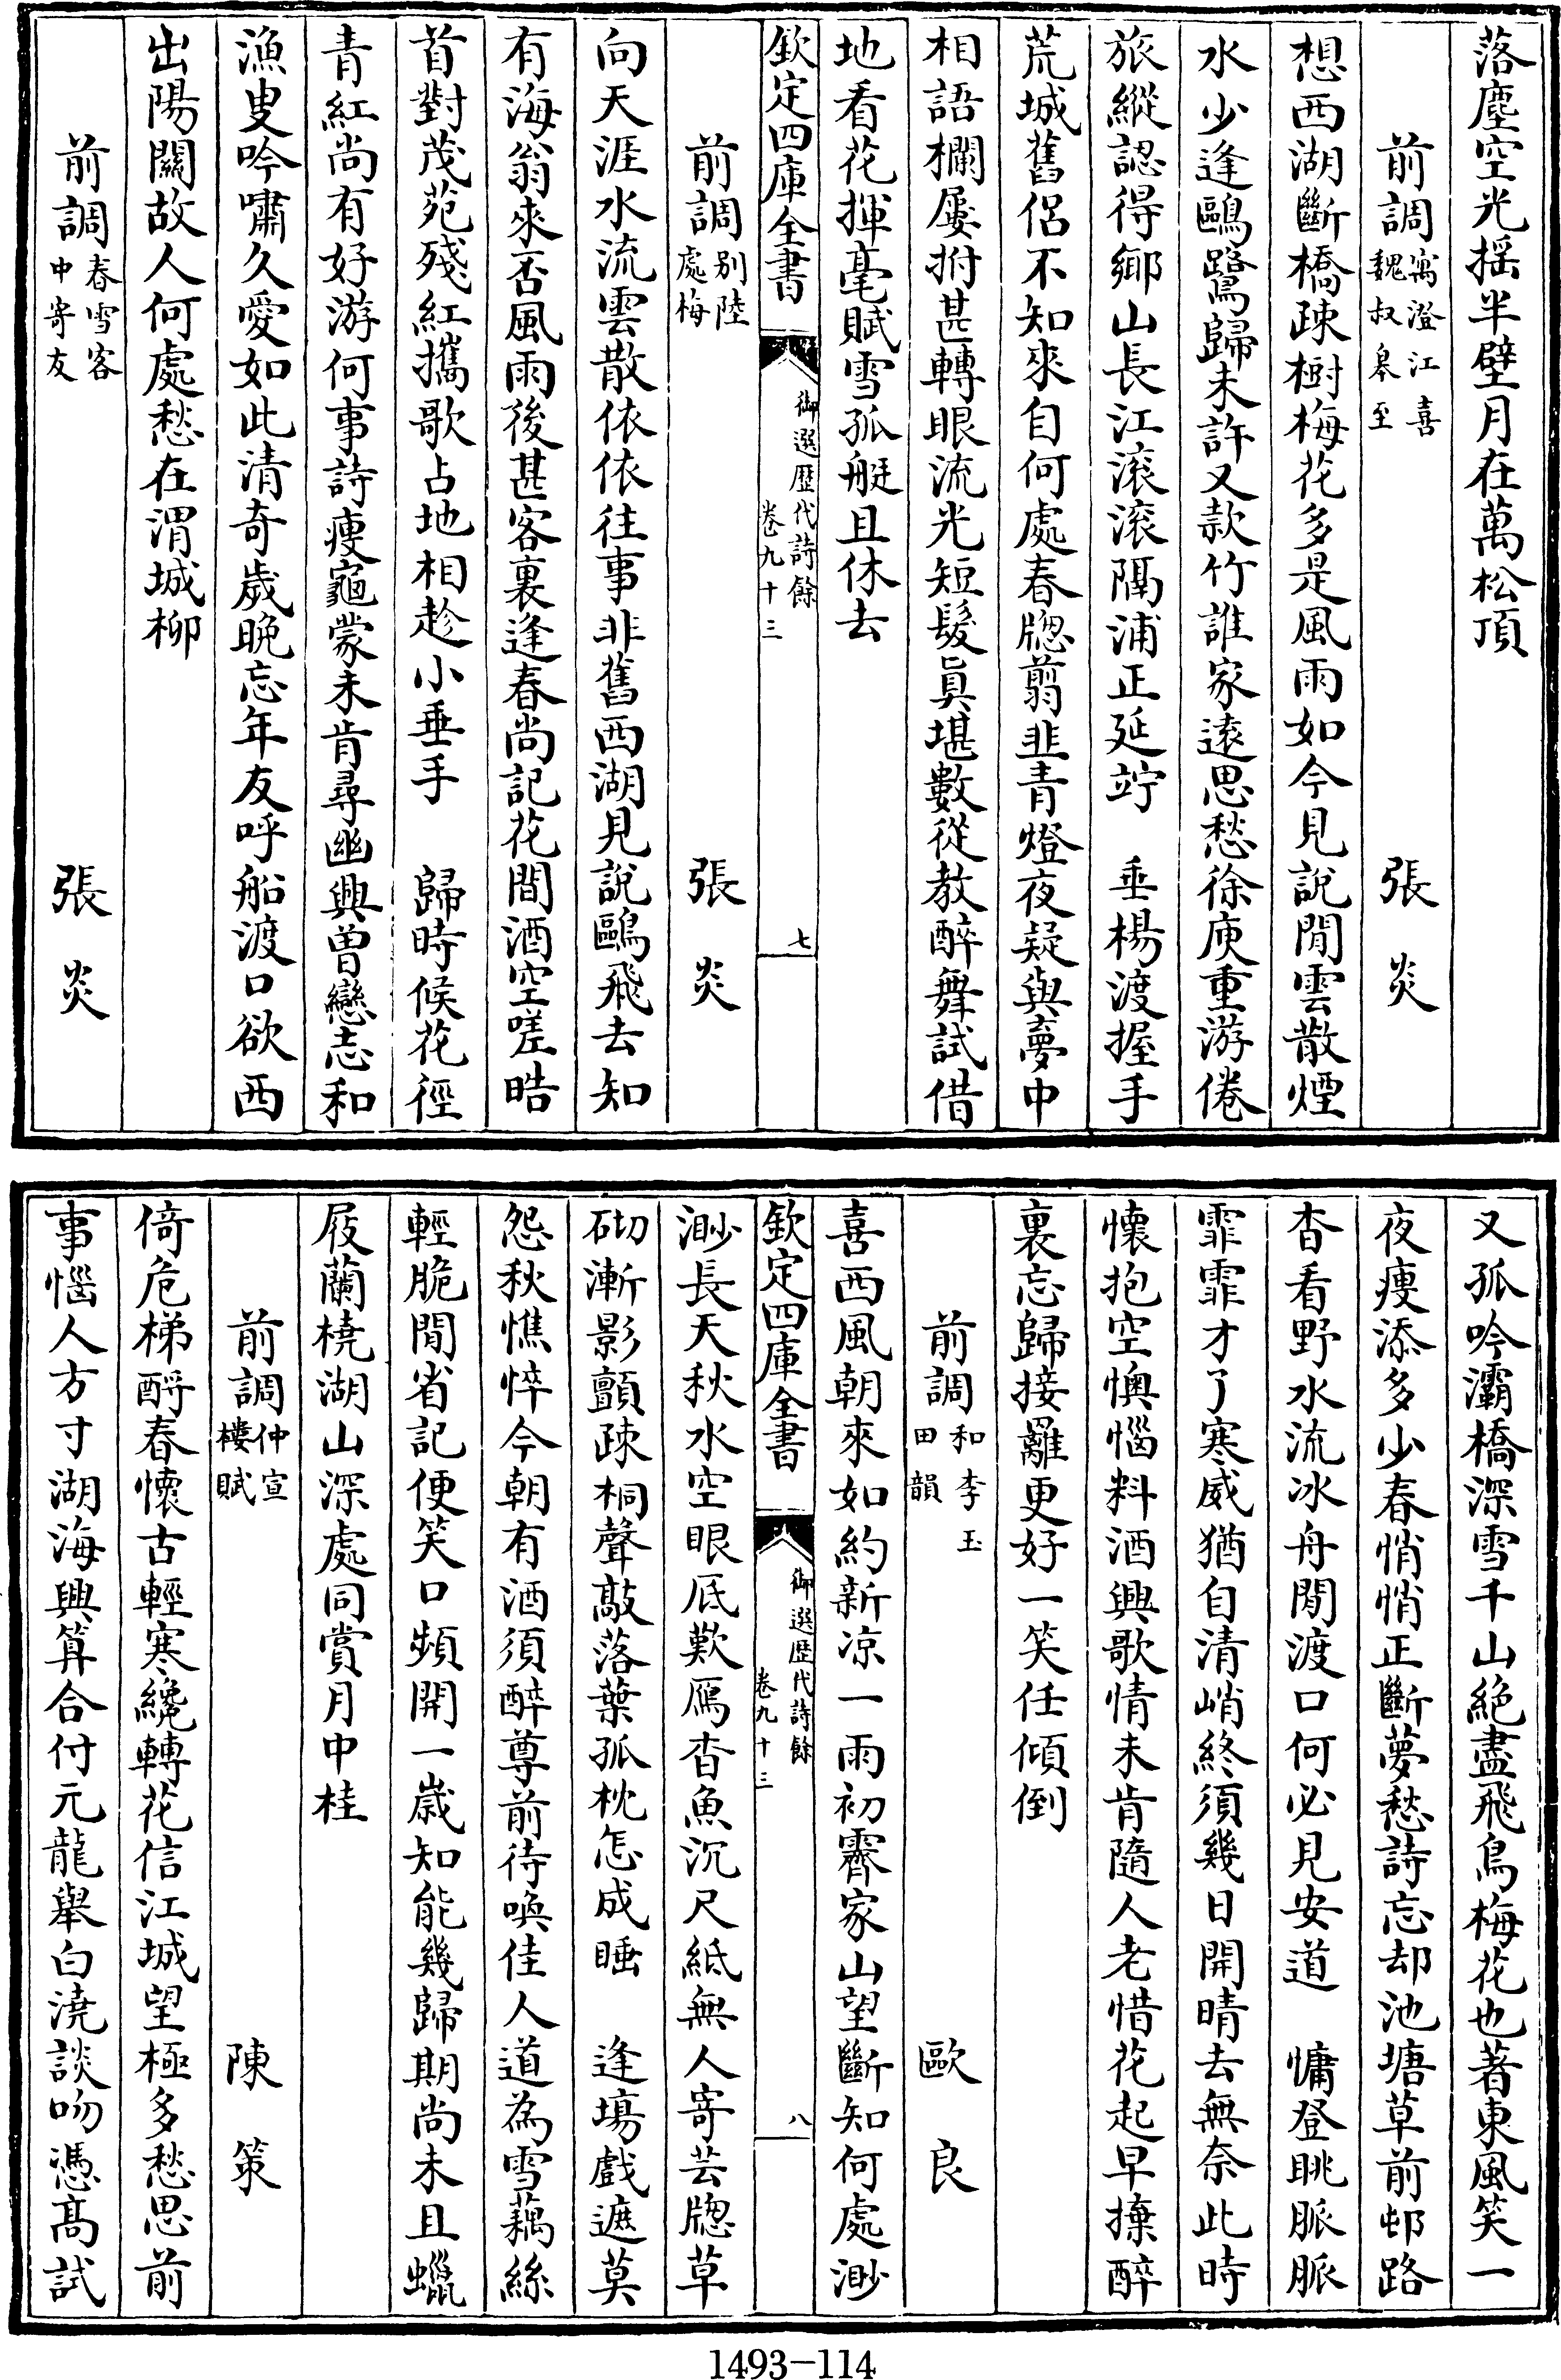 落塵空光揺半壁月在萬松頂
前調寓澄江喜魏叔皋至　張炎
想西湖斷橋疎樹梅花多是風雨如今見說閒雲散煙
水少逢鷗鷺歸未許又款竹誰家遠思愁徐庾重游倦
旅縱認得鄉山長江滾滾隔浦正延竚　垂楊渡握手
荒城舊侶不知來自何處春牕翦韭青燈夜疑與夢中
相語欄屢拊甚轉眼流光短髮眞堪數從教醉舞試借
地看花揮毫賦雪孤艇且休去
欽定四庫全書　御選歷代詩餘卷九十三　七
前調別陸處梅　張炎
向天涯水流雲散依依往事非舊西湖見說鷗飛去知
有海翁來否風雨後甚客裏逢春尚記花間酒空嗟皓
首對茂苑殘紅攜歌占地相趁小垂手　歸時候花徑
青紅尚有好游何事詩瘦龜蒙未肯尋幽興曽戀志和
漁叟吟嘯久愛如此清奇歲晚忘年友呼船渡口欲西
出陽關故人何處愁在渭城柳
前調春雪客中寄友　張炎
又孤吟灞橋深雪千山絶盡飛鳥梅花也著東風笑一
夜瘦添多少春悄悄正斷夢愁詩忘却池塘草前邨路
杳看野水流冰舟閒渡口何必見安道　慵登眺脈脈
霏霏才了寒威猶自清峭終須幾日開晴去無奈此時
懷抱空懊惱料酒興歌情未肯隨人老惜花起早撲醉
裏忘歸接䍦更好一笑任傾倒
前調和李玉田韻　歐良
喜西風朝來如約新凉一雨初霽家山望斷知何處渺
欽定四庫全書　御選歷代詩餘卷九十三　八
渺長天秋水空眼底歎鴈杳魚沉尺紙無人寄芸牕草
砌漸影顫疎桐聲敲落葉孤枕怎成睡　逢塲戲遮莫
怨秋憔悴今朝有酒須醉尊前待喚佳人道為雪藕絲
輕脆閒省記便笑口頻開一歲知能幾歸期尚未且蠟
屐蘭橈湖山深處同賞月中桂
前調仲宣樓賦　陳策
倚危梯酹春懷古輕寒纔轉花信江城望極多愁思前
事惱人方寸湖海興算合付元龍舉白澆談吻憑髙試
1493-114